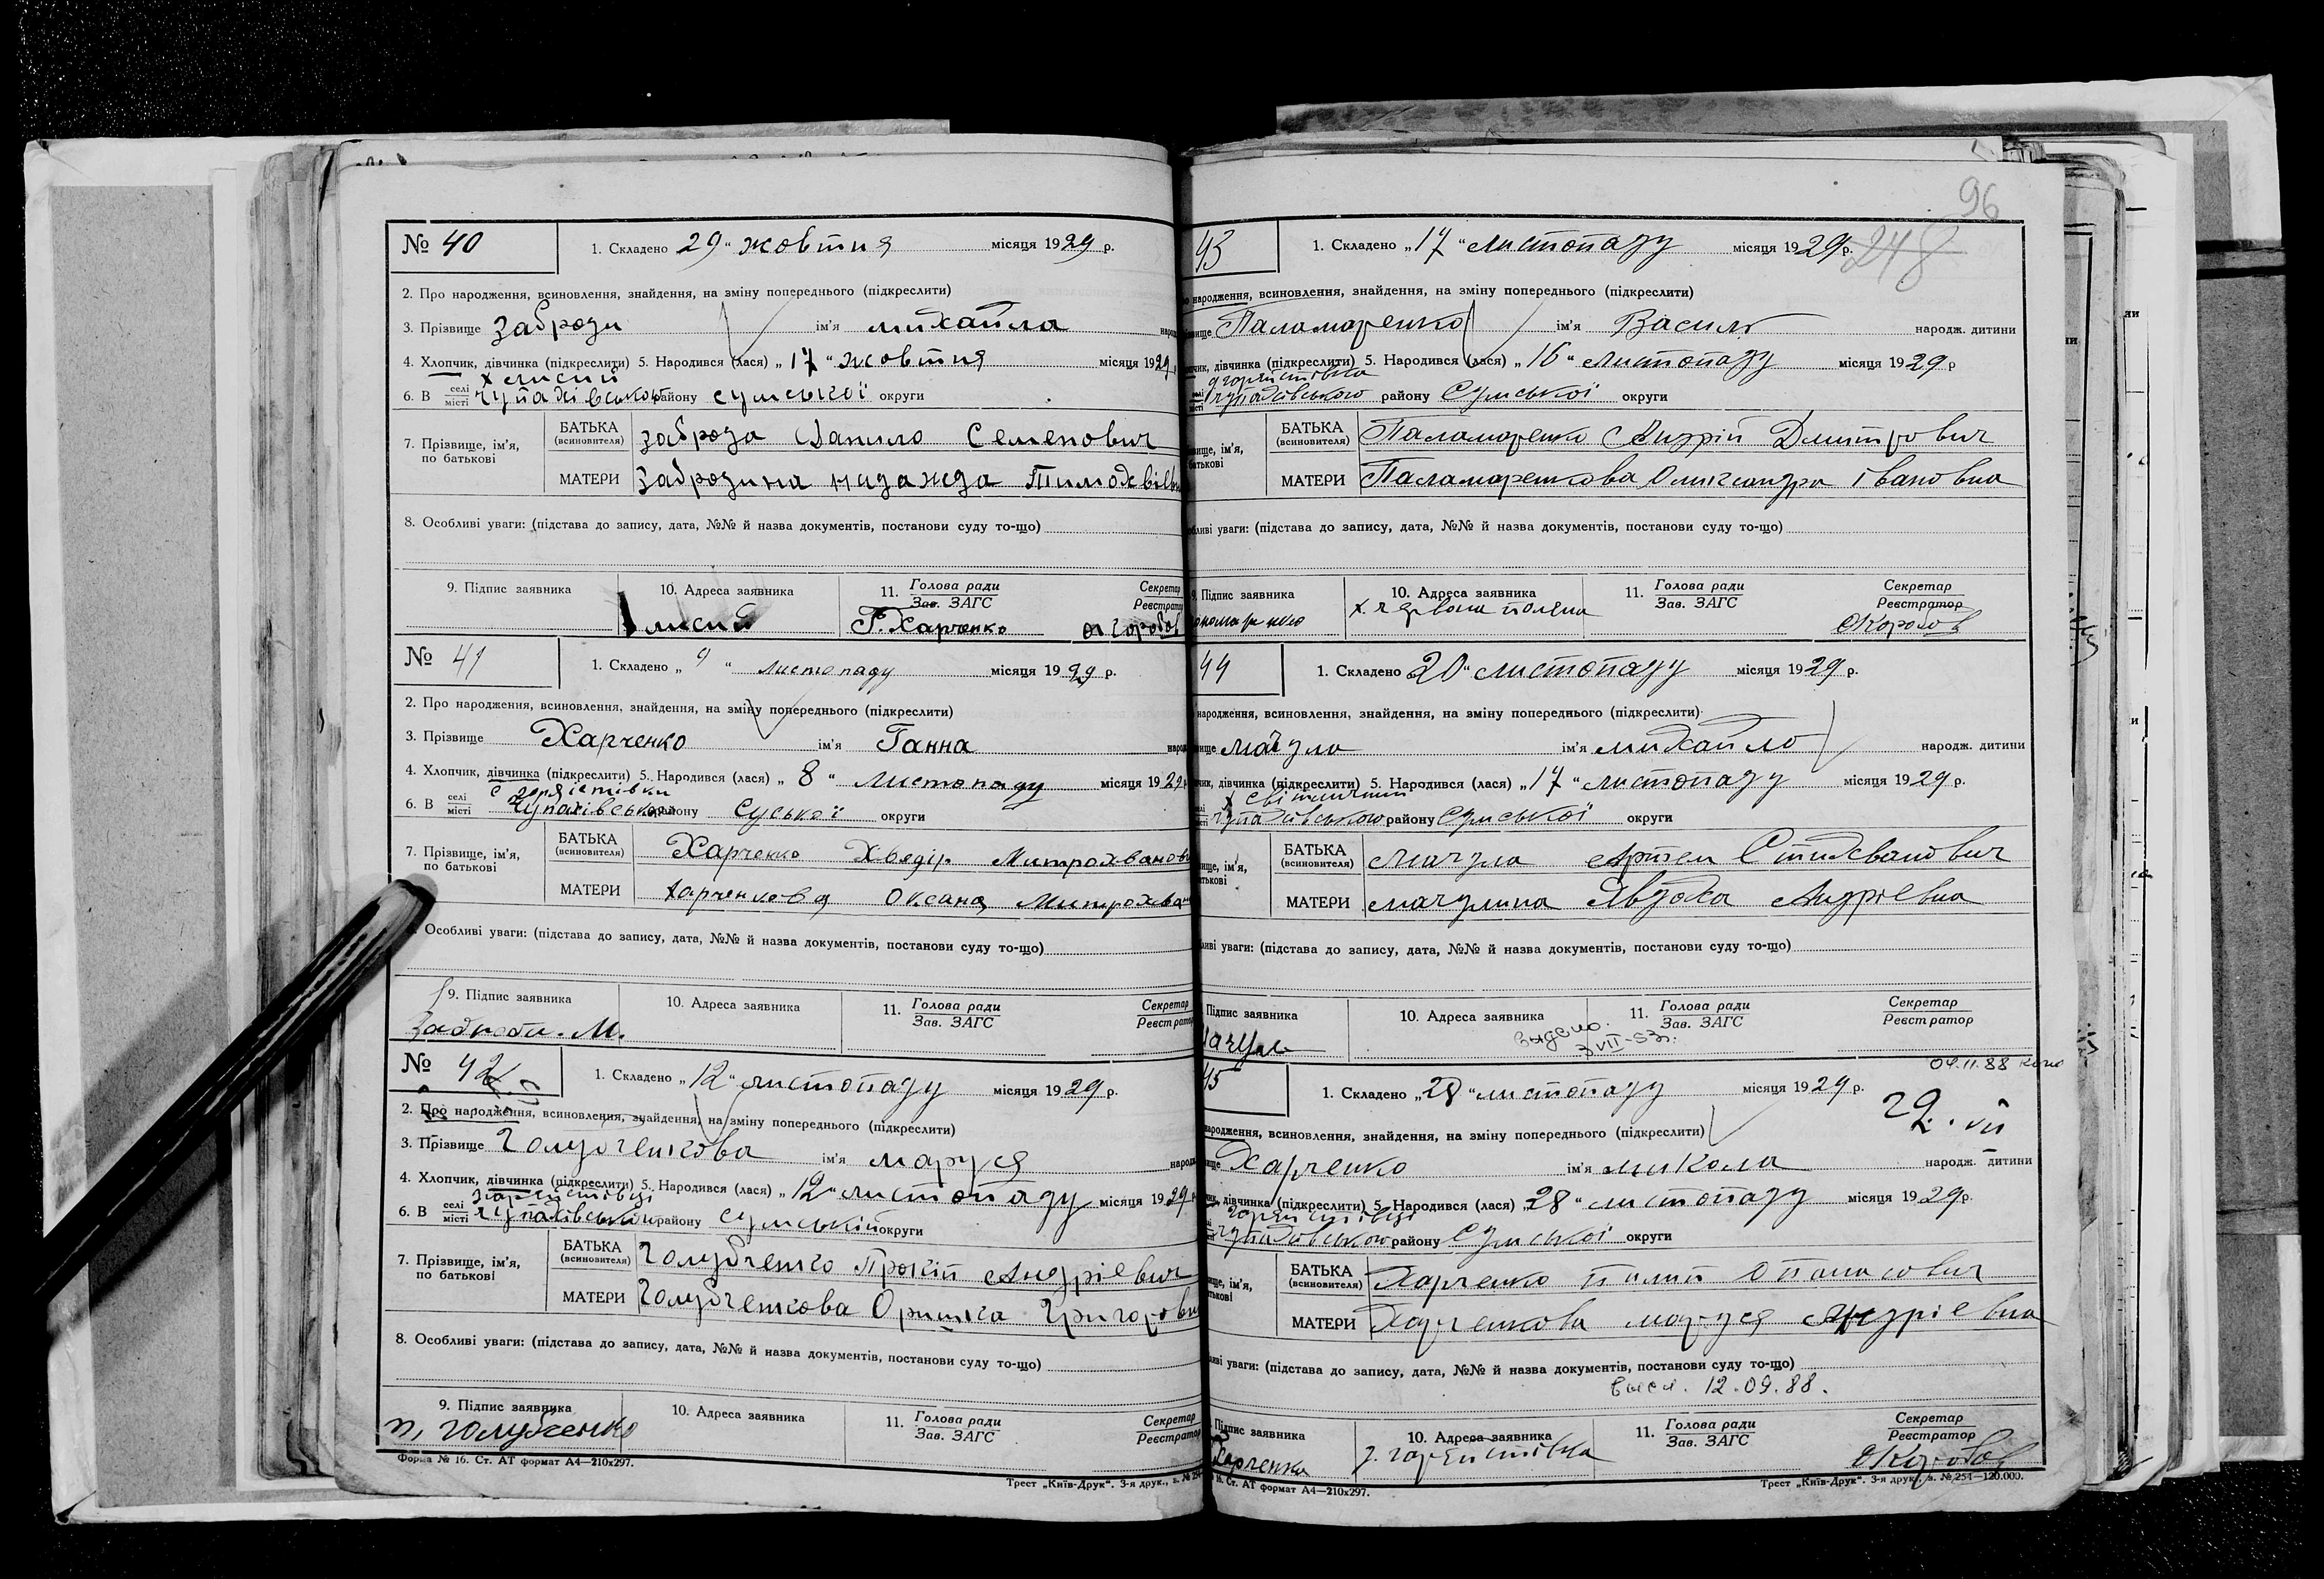 № 40
1. Складено 29 " жовтня місяця 1929 р.
2. Про народження, всиновлення, знайдення, на зміну попереднього (підкреслити)
3. Прізвище Заброди ім'я михайла народ
4. Хлопчик, дівчинка (підкреслити) 5. Народився (лася) „ 17 " жовтня місяця 1929
х лисий
6. В селі місті чупахівського району сумської округи
7. Прізвище, ім'я, по батькові
БАТЬКА (всиновителя) заброда Данило Семенович
МАТЕРИ Забродина надажда
8. Особливі уваги: (підстава до запису, дата, №№ й назва документів, постанови суду то-що)
9. Підпис заявника 10. Адреса заявника 11. Голова ради Зав. ЗАГС Секретар Реєстратор
лисий Г. Харченко
№ 41
1. Складено „ 9 " листопаду місяця 1929 р.
2. Про народження, всиновлення, знайдення, на зміну попереднього (підкреслити)
3. Прізвище Харченко ім'я Ганна народ
4. Хлопчик, дівчинка (підкреслити) 5. Народився (лася) „ 8 " листопаду місяця 1929
6. В селі місті Чупахівського району Суської округи
7. Прізвище, ім'я, по батькові
БАТЬКА (всиновителя) Харченко Хведір Митрохванови
МАТЕРИ Харченкова Оксана Митрохван
Особливі уваги: (підстава до запису, дата, №№ й назва документів, постанови суду то-що)
9. Підпис заявника 10. Адреса заявника 11. Голова ради Зав. ЗАГС Секретар Реєстратор
№ 42
1. Складено „ 12 " листопаду місяця 1929 р.
2. Про народження, всиновлення, знайдення, на зміну попереднього (підкреслити)
3. Прізвище Голубченкова ім'я маруся народ
4. Хлопчик, дівчинка (підкреслити) 5. Народився (лася) „ 12 " листопаду місяця 1929
6. В селі місті району сумській округи
7. Прізвище, ім'я, по батькові
БАТЬКА (всиновителя) Голубченко Прокіп Андрієвич
МАТЕРИ Голубченкова Оришка Григоровн
8. Особливі уваги: (підстава до запису, дата, №№ й назва документів, постанови суду то-що)
9. Підпис заявника 10. Адреса заявника 11. Голова ради Зав. ЗАГС Секретар Реєстратор
п, голубченко
Форма № 16. Ст. АТ формат А4—210х297.
Трест „Київ-Друк". 3-я друк., з. № 254
96
248
43
1. Складено „ 17 " листопаду місяця 1929 р.
народження, всиновлення, знайдення, на зміну попереднього (підкреслити)
Паламаренко ім'я Василь народж. дитини
дівчинка (підкреслити) 5. Народився (лася) „ 16 " листопаду місяця 1929 р
чупахівського району Сумської округи
БАТЬКА (всиновителя) Паламаренко Андрій Дмитрович
МАТЕРИ Паламаренкова Олександра івановна
уваги: (підстава до запису, дата, №№ й назва документів, постанови суду то-що)
9. Підпис заявника 10. Адреса заявника 11. Голова ради Зав. ЗАГС Секретар Реєстратор
х. червона поляна
44
1. Складено 20 " листопаду місяця 1929 р.
народження, всиновлення, знайдення, на зміну попереднього (підкреслити)
мачула ім'я михайло народж. дитини
дівчинка (підкреслити) 5. Народився (лася) „ 17 " листопаду місяця 1929 р.
чупахівського району Сумської округи
БАТЬКА (всиновителя) Мачула Артем
МАТЕРИ мачулина Явдоха Андрієвна
уваги: (підстава до запису, дата, №№ й назва документів, постанови суду то-що)
Підпис заявника 10. Адреса заявника 11. Голова ради Зав. ЗАГС Секретар Реєстратор
видано.
3 VII-53г.
04.11.88
45
1. Складено „ 28 " листопаду місяця 1929 р.
29. VII
народження, всиновлення, знайдення, на зміну попереднього (підкреслити)
Харченко ім'я микола народж. дитини
дівчинка (підкреслити) 5. Народився (лася) 28 " листопаду місяця 1929 р.
чупахівського району Сумської округи
БАТЬКА (всиновителя) Харченко пилип Опанасович
МАТЕРИ Харченкова маруся Андрієвна
уваги: (підстава до запису, дата, №№ й назва документів, постанови суду то-що)
высл. 12.09.88.
Підпис заявника 10. Адреса заявника 11. Голова ради Зав. ЗАГС Секретар Реєстратор
Харченко
16. Ст. АТ формат А4—210х297.
Трест „Київ-Друк". 3-я друк., з. № 254—120.000.